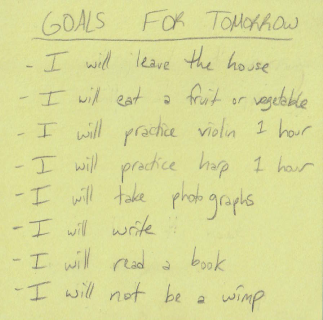 GOALS FOR TOMORROW
- I will leave the house
- I will eat a fruit or vegetable
- I will practice violin 1 hour
- I will practice harp 1 hour
- I will take photographs
- I will write
- I will read a book
- I will not be a wimp